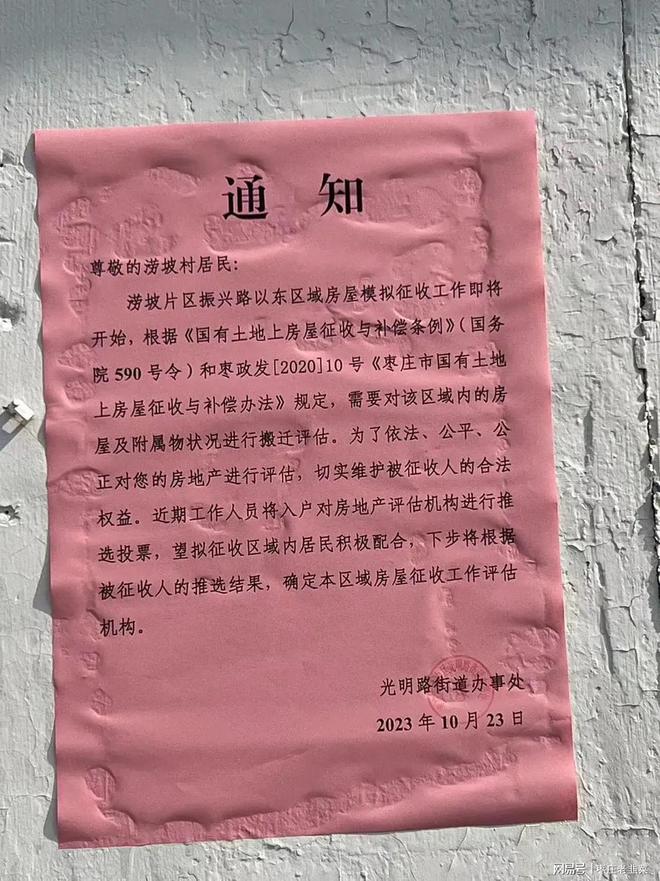 通 知
尊敬的涝坡村居民：
涝坡片区振兴路以东区域房屋模拟征收工作即将
开始，根据《国有土地上房屋征收与补偿条例》（国务
院 590 号令）和枣政发[2020]10 号《枣庄市国有土地
上房屋征收与补偿办法》规定，需要对该区域内的房
屋及附属物状况进行搬迁评估。为了依法、公平、公
正对您的房地产进行评估，切实维护被征收人的合法
权益。近期工作人员将入户对房地产评估机构进行推
选投票，望拟征收区域内居民积极配合，下步将根据
被征收人的推选结果，确定本区域房屋征收工作评估
机构。
光明路街道办事处
2023 年 10 月 23 日
网易号 | 枣庄老韭菜